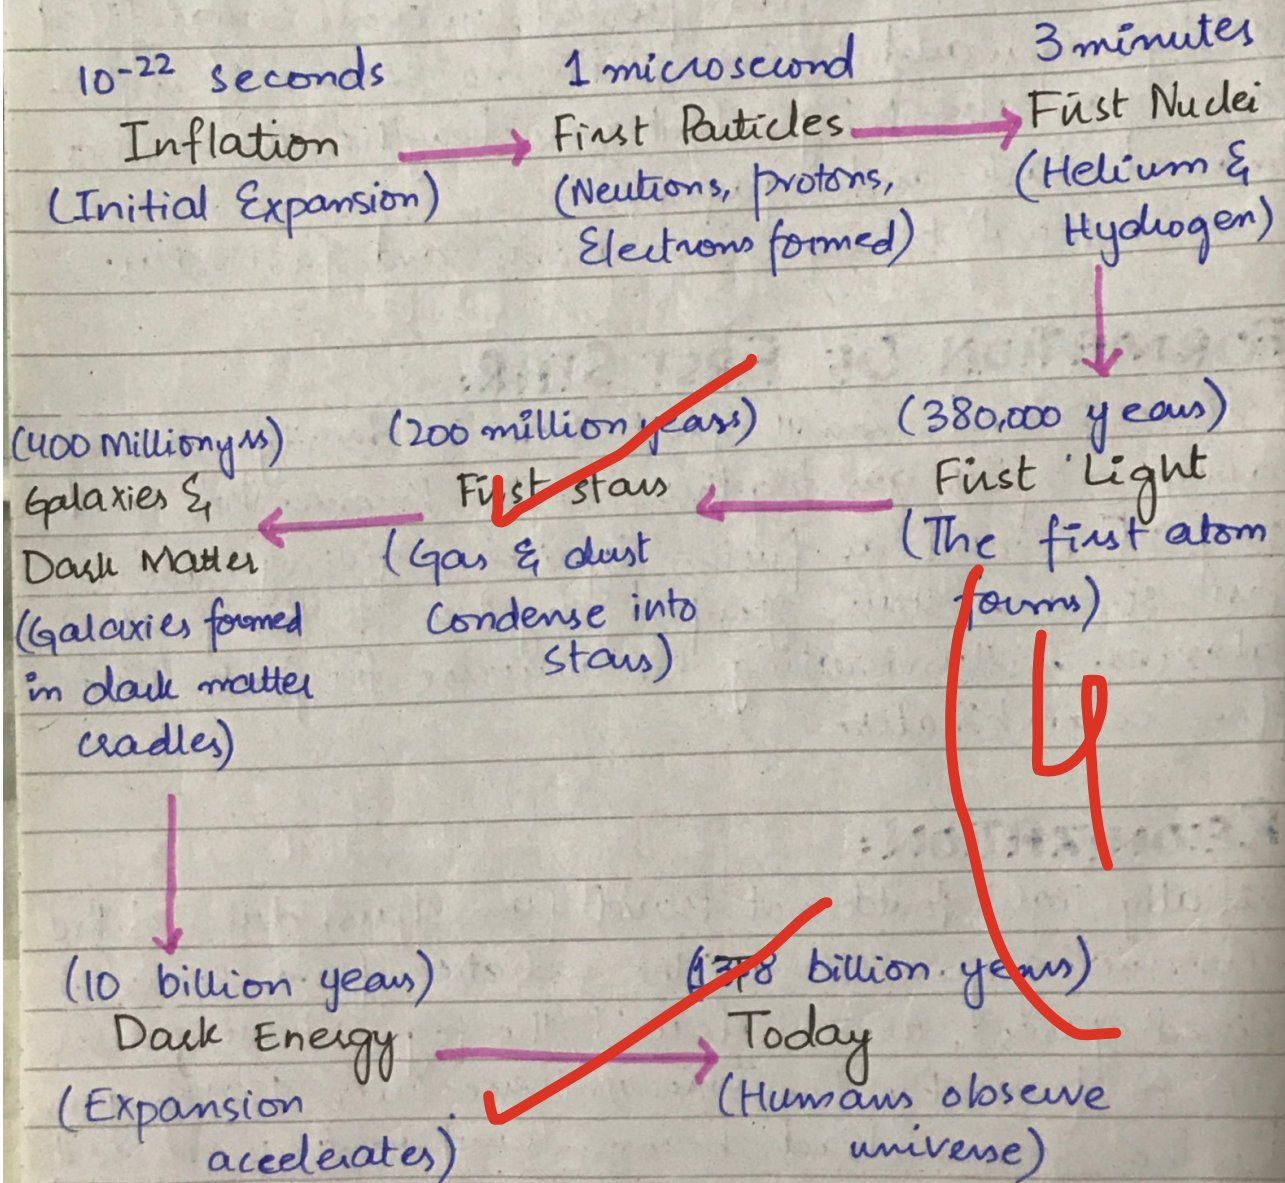 10-22 seconds
Inflation
(Initial Expansion)
1 microsecond
First Particles
(Neutrons, protons,
Electrons formed)
3 minutes
First Nuclei
(Helium &
Hydrogen)
(380,000 years)
First Light
(The first atom
forms)
(200 million years)
First stars
(Gas & dust
Condense into
stars)
(400 Million yrs)
Galaxies &
Dark Matter
(Galaxies formed
in dark matter
cradles)
(10 billion years)
Dark Energy
(Expansion
accelerates)
billion years)
Today
(Humans observe
universe)
4